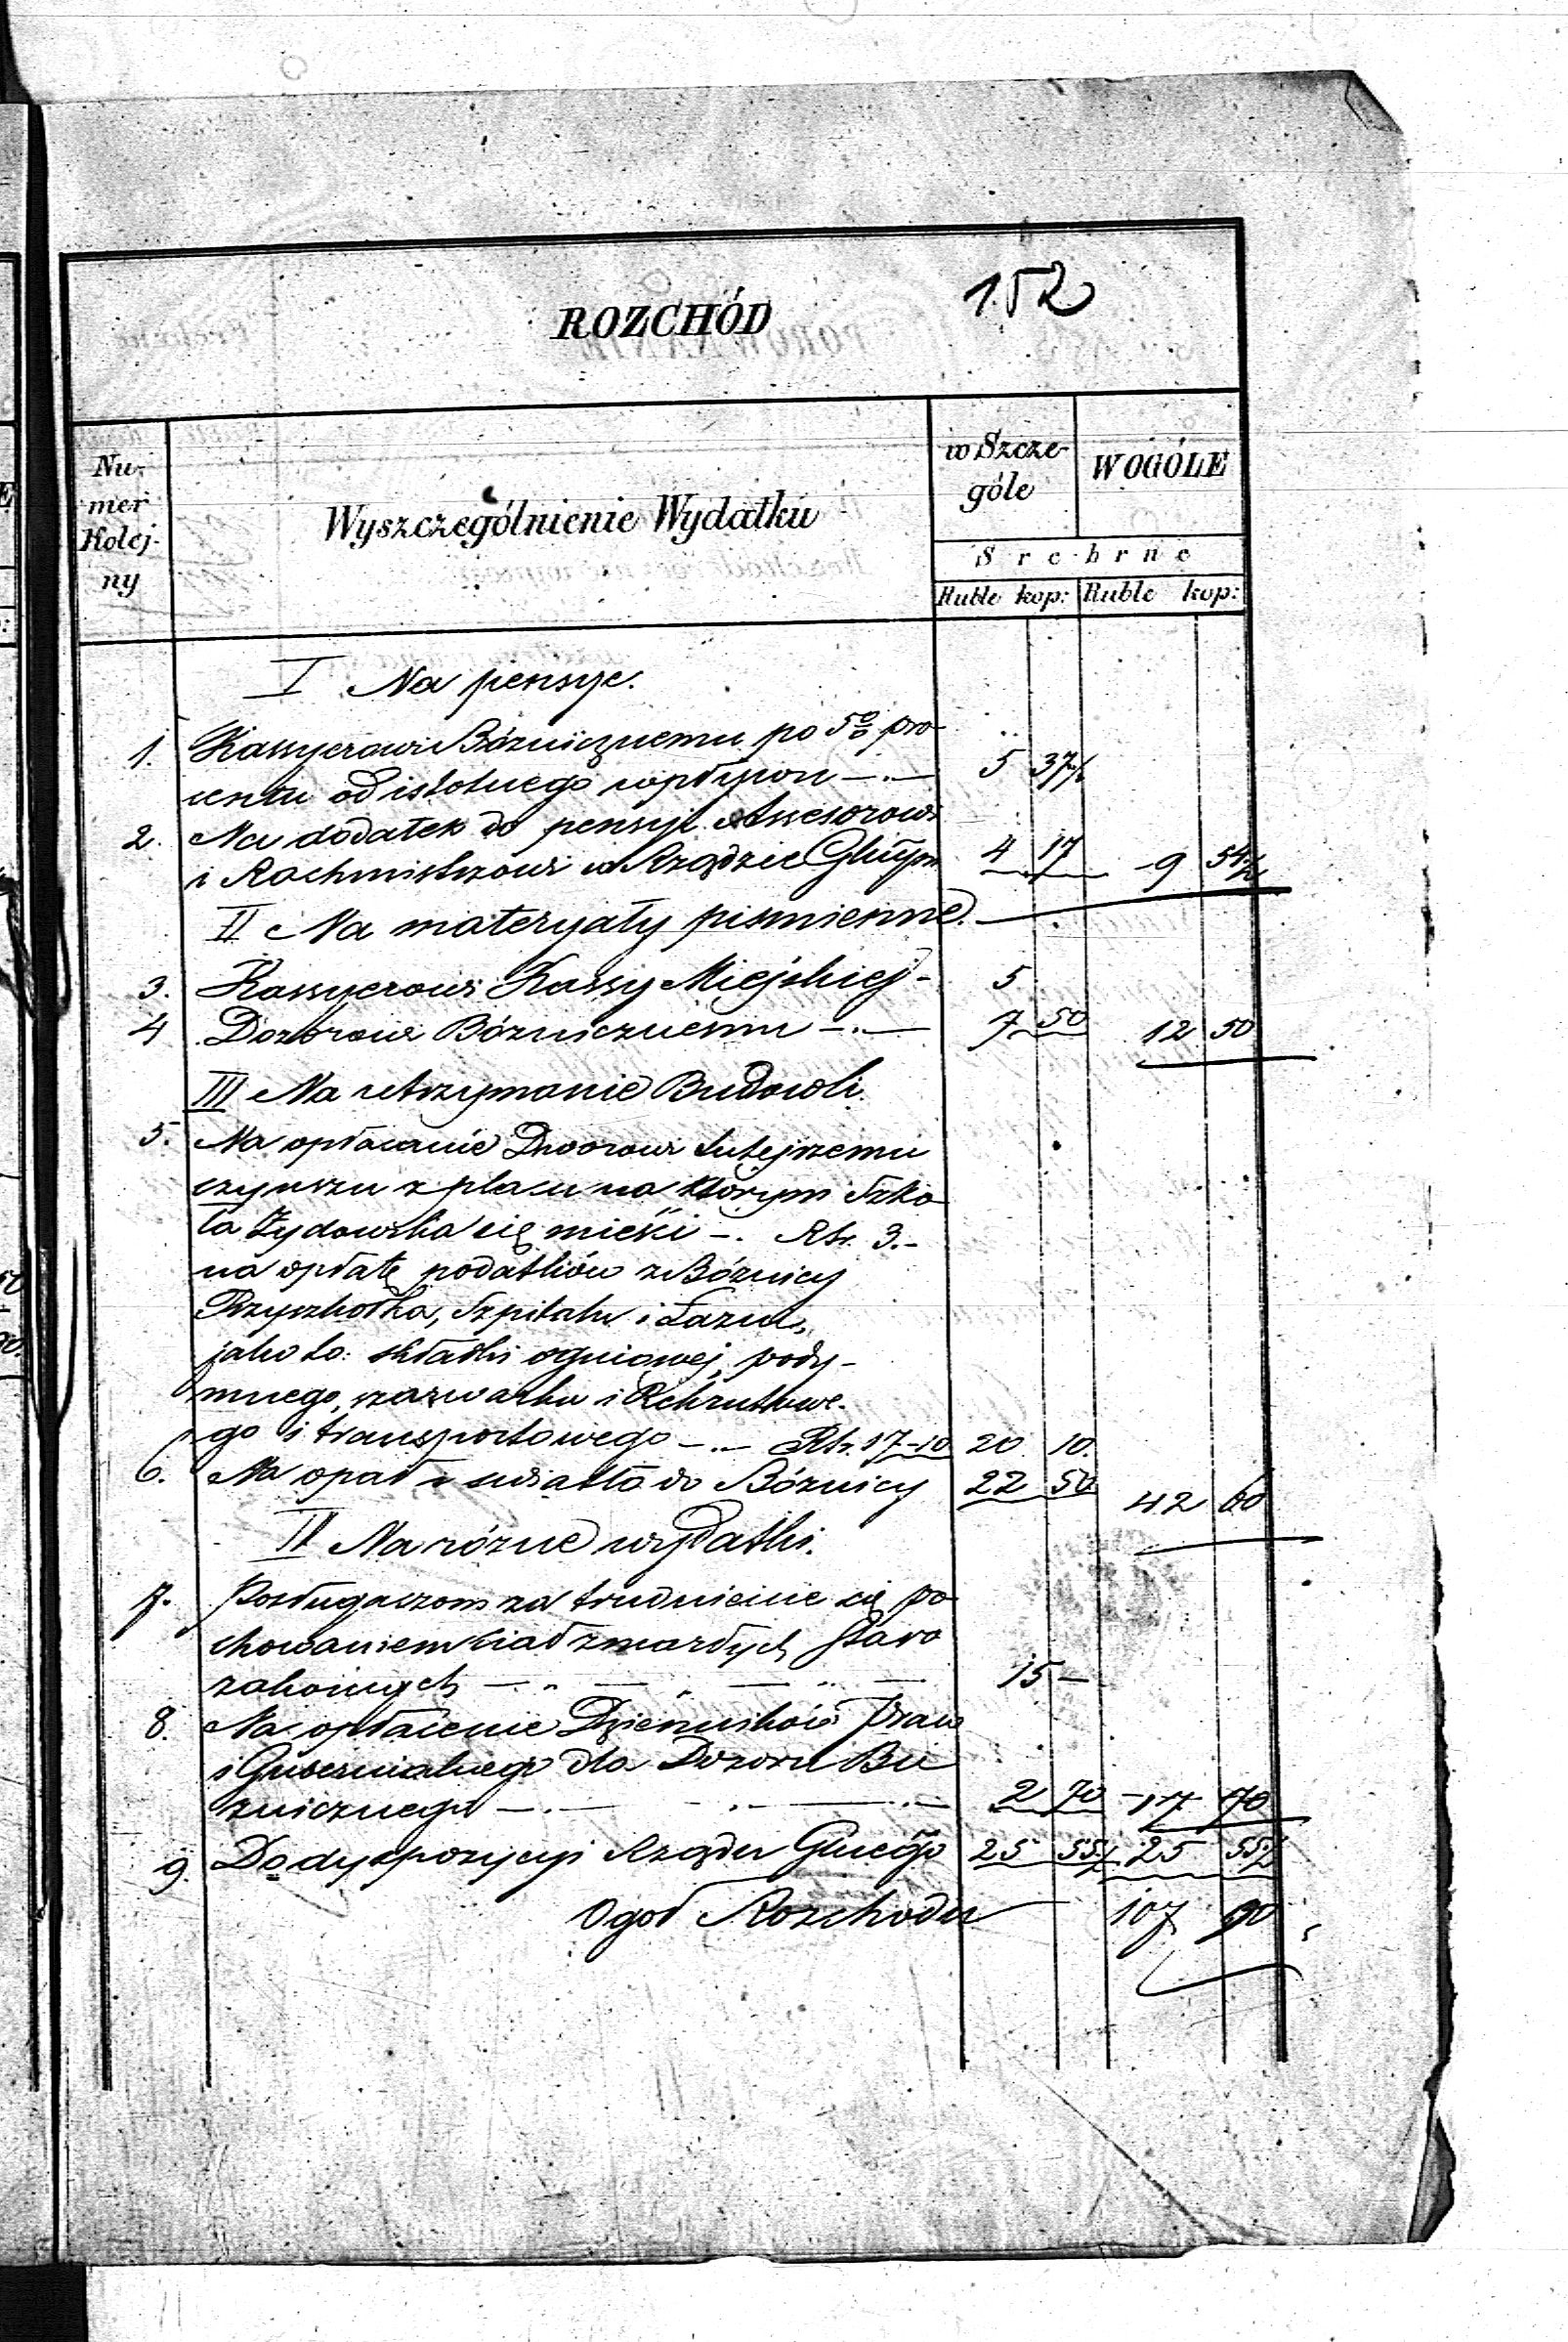 152
ROZCHÓD
Numer Kolejny
Wyszczególnienie Wydatku
w Szczególe
WOGÓLE
Srebrne
Ruble kop: Ruble kop:
I Na pensye.
1. Kassyerowi Bóżniczemu po 5% pro-
centu od istotnego wpływu —..— 5 37½
2. Na dodatek do pensyi Assesorowi
i Rachmistrzowi w Rządzie 4 17 9 54½
II Na materyały piśmienne.
3. Kassyerowi Kassy Miejskiej - 5
4 Dozorowi Bóznicznemu —.— 7 50 12 50
III Na utrzymanie Budowli.
5. Na opłacenie Dworowi tutejszemu
czynszu z placu na którym Szko
ła Żydowska się mieści —. Rsr. 3.-
na opłatę podatków z Bóżnicy
Przyszkołka, Szpitalu i Łazni,
jako to: składki ogniowej, pody-
mnego, szarwarku i Rekrutowe-
go i transportowego —.— Rsr. 17-10 20 10.
6. Na opał i światło do Bóżnicy 22 50 42 60
IV Na różne wydatki.
7. Posługaczom za trudnienie się po
chowaniem ciał zmarłych Staro
zakonnych — „ — „ — „ — 15 —
8. Na opłacenie Dzienników Praw
i Gubernialnego dla Dozoru Bu
zniczego —.— .. —..— 2 70 17 70
9. Do dyspozycyi Rządu Gnego 25 55½ 25 55½
Ogół Rozchodu 107 90